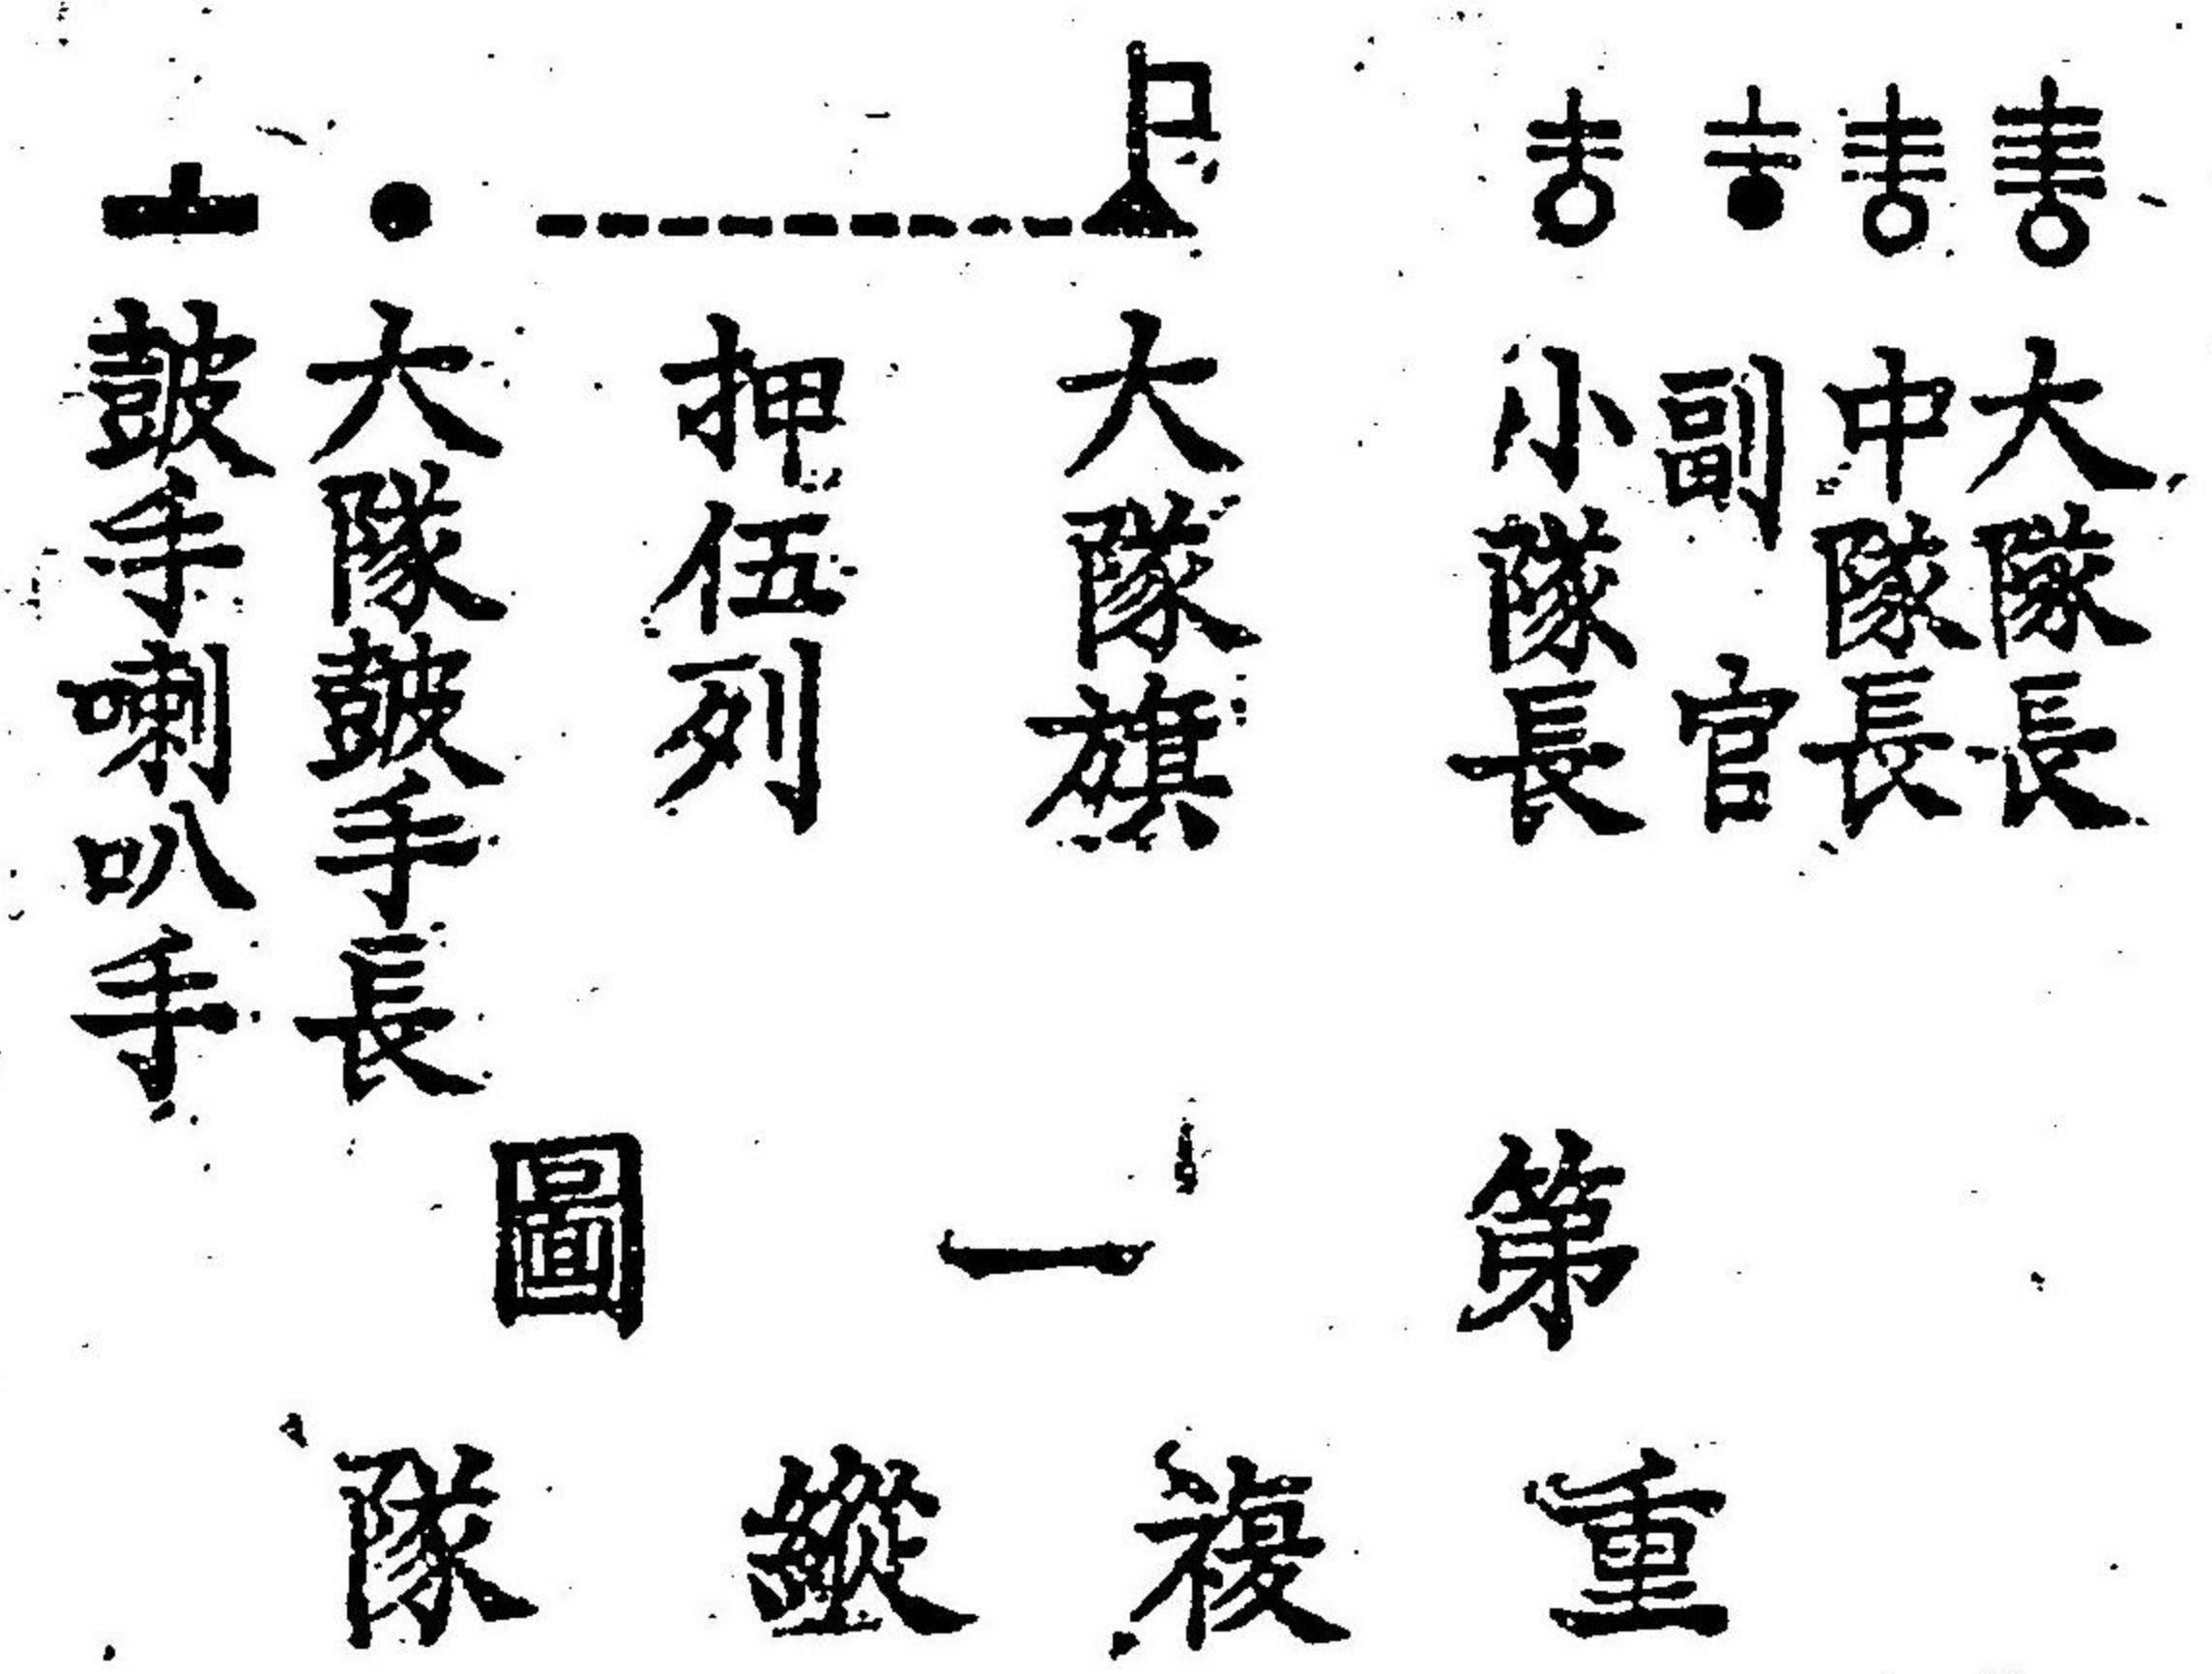 大隊長
中隊長
副官
小隊長
大隊旗
押伍列
大隊皷手長
皷手喇叭手
第一圖
重複縱隊